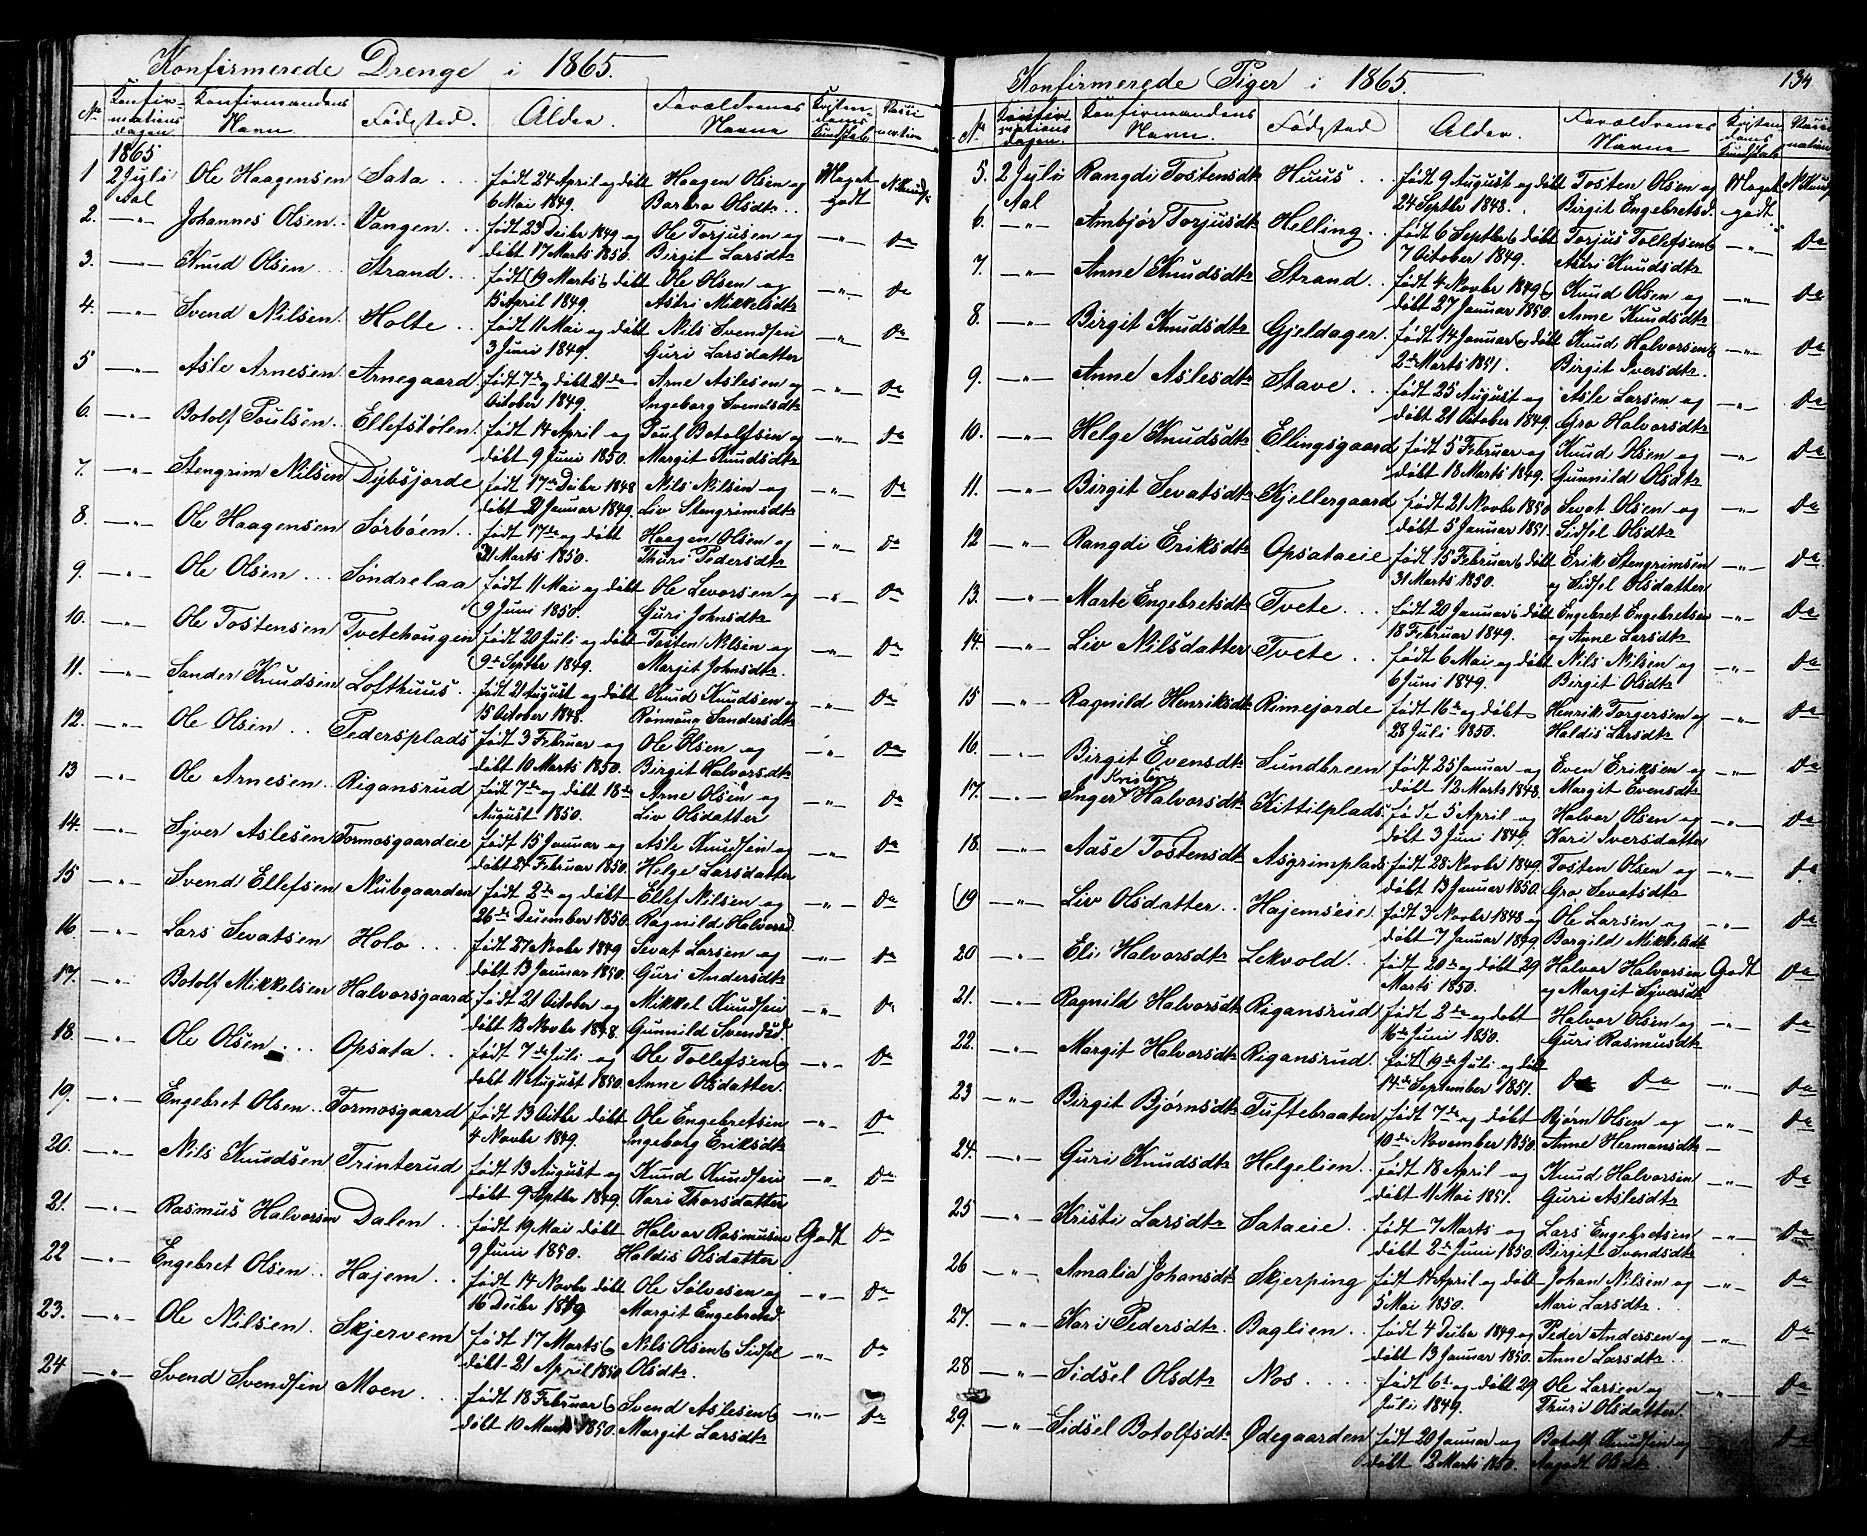 Konfirmerede Drenge i 1865.
No Konfirmationsdagen Konfirmandens Navn. Födsted. Alder. Forældrenes Navne Kristendoms Kundskab Vaccination
1865
1 2 Juli Aal Ole Haagensen Sata født 24 April og døbt 6 Mai 1849. Haagen Olsen og Barbro Olsdtr. Meget godt N. Knudsen
2. —"— Johannes Olsen Vangen. født 23 Decbr 1849 og døbt 17 Marts 1850. Ole Torjusen og Birgit Larsdtr —"— Do
3. —"— Knud Olsen Strand. født 19 Marts og døbt 15 April 1849. Ole Olsen og Astri Mikkelsdtr —"— Do
4. —"— Svend Nilsen. Holte født 11 Mai og døbt 3 Juni 1849. Nils Svendsen Guri Larsdatter —"— Do
5 —"— Asle Arnesen Arnegaard født 7de og døbt 21de October 1849. Arne Aslesen og Ingeborg Svendsdtr —"— Do
6. —"— Botolf Poulsen Ellefstølen. født 14 April og døbt 9 Juni 1850. Poul Botolfsen og Margit Knudsdtr —"— Do
7. —"— Stengrim Nilsen Dybsjorde født 17de Decbr 1848 døbt 21 Januar 1849. Nils Nilsen og Liv Stengrimsdtr —"— Do
8. —"— Ole Haagensen Sørbøen født 17de og døbt 31 Marts 1850. Haagen Olsen og Thuri Pedersdtr —"— Do
9. —"— Ole Olsen Søndrelaa født 11 Mai og døbt 9 Juni 1850. Ole Levorsen og Guri Johnsdtr —"— Do
10. —"— Ole Tostensen Tvetehougen født 20 Juli og døbt 9de Septbr 1849. Tosten Nilsen og Margit Johnsdtr. —"— Do
11. —"— Sander Knudsen Lofthuus. født 21 August og døbt 15 October 1848. Knud Knudsen og Rønnoug Sandersdtr —"— Do
12. —"— Ole Olsen Pedersplads født 3 Februar og døbt 10 Marts 1850. Ole Olsen og Birgit Halvorsdtr —"— Do
13 —"— Ole Arnesen Rigansrud født 7de og døbt 18de August 1850. Arne Olsen og Liv Olsdatter —"— Do
14. —"— Syver Aslesen Tormosgaardeie født 15 Januar og døbt 24 Februar 1850. Asle Knudsen og Helge Larsdatter —"— Do
15 —"— Svend Ellefsen Nubgaarden født 2de og døbt 26de December 1850. Ellef Nilsen og Ragnild Halvorsd. —"— Do
16. —"— Lars Sevatsen Holo født 27 Novbr 1849 døbt 13 Januar 1850. Sevat Larsen og Guri Andersdtr —"— Do
17. —"— Botolf Mikkelsen Halvorsgaard født 21 October og døbt 12 Novbr 1848. Mikkel Knudsen Gunnild Svendsd. —"— Do
18. —"— Ole Olsen Opsata født 7de Juli og døbt 11 August 1850. Ole Tollefsen og Anne Olsdatter. —"— Do
19. —"— Engebret Olsen Tormosgaard født 13 Octbr døbt 4 Novbr 1849. Ole Engebretsen Ingeborg Eriksdtr —"— Do
20. —"— Nils Knudsen Trinterud født 13 August og døbt 9 Septbr 1849. Knud Knudsen Kari Thorsdatter —"— Do
21. —"— Rasmus Halvorsen Dalen født 19 Mai døbt 9 Juni 1850. Halvor Rasmusen Haldis Olsdatter Godt Do
22 —"— Engebret Olsen Hajem født 14 Novbr døbt 16 Decbr 1849 Ole Sølvesen og Margit Engebretsd —"— Do
23. —"— Ole Nilsen. Skjervem født 17 Marts og døbt 21 April 1850 Nils Olsen og Sidsel Olsdtr. —"— Do
24 —"— Svend Svendsen Moen født 18 Februar og døbt 10 Marts 1850. Svend Aslesen og Margit Larsdtr —"— Do
Konfirmerede Piger i 1865. 134
No Konfirmationsdagen. Konfirmandens Navn. Födsted Alder. Forældrenes Navne Kristendoms Kundskab Vaccination
5. 2 Juli Aal Rangdi Tostensdtr Huus født 9 August og døbt 24 Septbr 1848. Tosten Olsen og Birgit Engebretsd. Meget godt N. Knudsen
6. —"— Ambjør Torjusdtr Helling født 6 Septbr og døbt 7 October 1849. Torjus Tollefsen og Astri Knudsdtr —"— Do
7. —"— Anne Knudsdtr Strand født 4 Novbr 1849 og døbt 27 Januar 1850. Knud Olsen og Anne Knudsdtr —"— Do
8. —"— Birgit Knudsdtr Gjeldager. født 14 Januar og døbt 2de Marts 1851. Knud Halvorsen og Birgit Iversdtr. —"— Do
9. —"— Anne Aslesdtr Stave født 25 August og døbt 21 October 1849. Asle Larsen og Gro Halvorsdtr —"— Do
10. —"— Helge Knudsdtr Ellingsgaard født 5 Februar og døbt 18 Marts 1849. Knud Olsen og Gunnild Olsdtr —"— Do
11. —"— Birgit Sevatsdtr Kjellergaard født 21 Novbr 1850 døbt 5 Januar 1851. Sevat Olsen og Sidsel Olsdtr —"— Do
12 —"— Rangdi Eriksdtr Opsataeie født 15 Februar og døbt 31 Marts 1850. Erik Stengrimsen og Sidsel Olsdatter —"— Do
13. —"— Marte Engebretsdtr Tvete født 20 Januar og døbt 18 Februar 1849. Engebret Engebretsen og Anne Larsdtr —"— Do
14. —"— Liv Nilsdatter Tvete født 6 Mai og døbt 6 Juni 1849. Nils Nilsen og Birgit Olsdtr —"— Do
15 —"— Ragnild Henriksdtr Rimejorde født 16de og døbt 28 Juli 1850. Henrik Torgersen og Haldis Larsdtr —"— Do
16. —"— Birgit Evensdtr Sundbreen født 25 Januar og døbt 12 Marts 1848. Even Eriksen og Margit Evensdtr —"— Do
17. —"— Inger Kristine Halvorsdtr Kittilplads. føde 5 April og døbt 3 Juni 1849. Halvor Olsen og Kari Iversdatter —"— Do
18. —"— Aase Tostensdtr Asgrimplads født 28 Novbr 1849. døbt 13 Januar 1850. Tosten Olsen og Gro Sevatsdtr —"— Do
19 —"— Liv Olsdatter Hajemseie født 3 Novbr 1848 og døbt 7 Januar 1849 Ole Larsen og Borgild Mikkelsdtr —"— Do
20 —"— Eli Halvorsdtr Lekvold født 20de og døbt 29 Marts 1850. Halvor Halvorsen og Margit Syversdtr Godt Do
21. —"— Ragnild Halvorsdtr Rigansrud født 2de og døbt 16de Juni 1850. Halvor Olsen og Guri Rasmusdtr —"— Do
22. —"— Margit Halvorsdtr Rigansrud født 19de Juli og døbt 14de September 1851. Do Do —"— Do
23 —"— Birgit Bjørnsdtr Tuftebraaten født 7de og døbt 10de November 1850. Bjørn Olsen og Anne Hermansdtr —"— Do
24. —"— Guri Knudsdtr Helgelien født 18 April og døbt 11 Mai 1851. Knud Halvorsen Guri Aslesdtr —"— Do
25 —"— Kristi Larsdtr Sataeie født 7 Marts og døbt 2de Juni 1850. Lars Engebretsen Birgit Svendsdtr —"— Do
26 —"— Amalia Johansdtr Skjerping født 14 April og døbt 5 Mai 1850. Johan Nilsen og Mari Larsdtr —"— Do
27. —"— Kari Pedersdtr. Baglien født 4 Decbr 1849 og døbt 13 Januar 1850. Peder Andersen og Anne Larsdtr —"— Do
28 —"— Sidsel Olsdtr Nos født 6t og døbt 29 Juli 1849. Ole Larsen og Thuri Olsdatter. —"— Do
29. —"— Sidsel Botolfsdtr Ødegaarden født 20 Januar og døbt 2 Marts 1850. Botolf Knudsen og Aagodt Olsdtr —"— Do